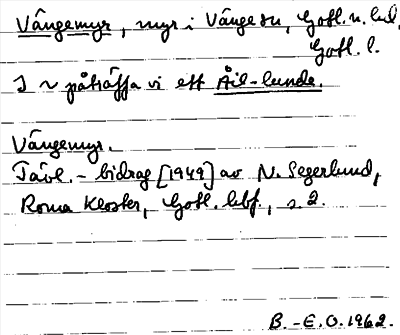 Vängemyr, myr i Vänge sn, Gotl. n. hd,
Gotl. l.
I ~ påträffa vi ett Åil-lunde.
Vängemyr.
Tävl.-bidrag [1949] av N. Segerlund,
Roma Kloster, Gotl. hbf., s. 2.
B.-E.O. 1962.